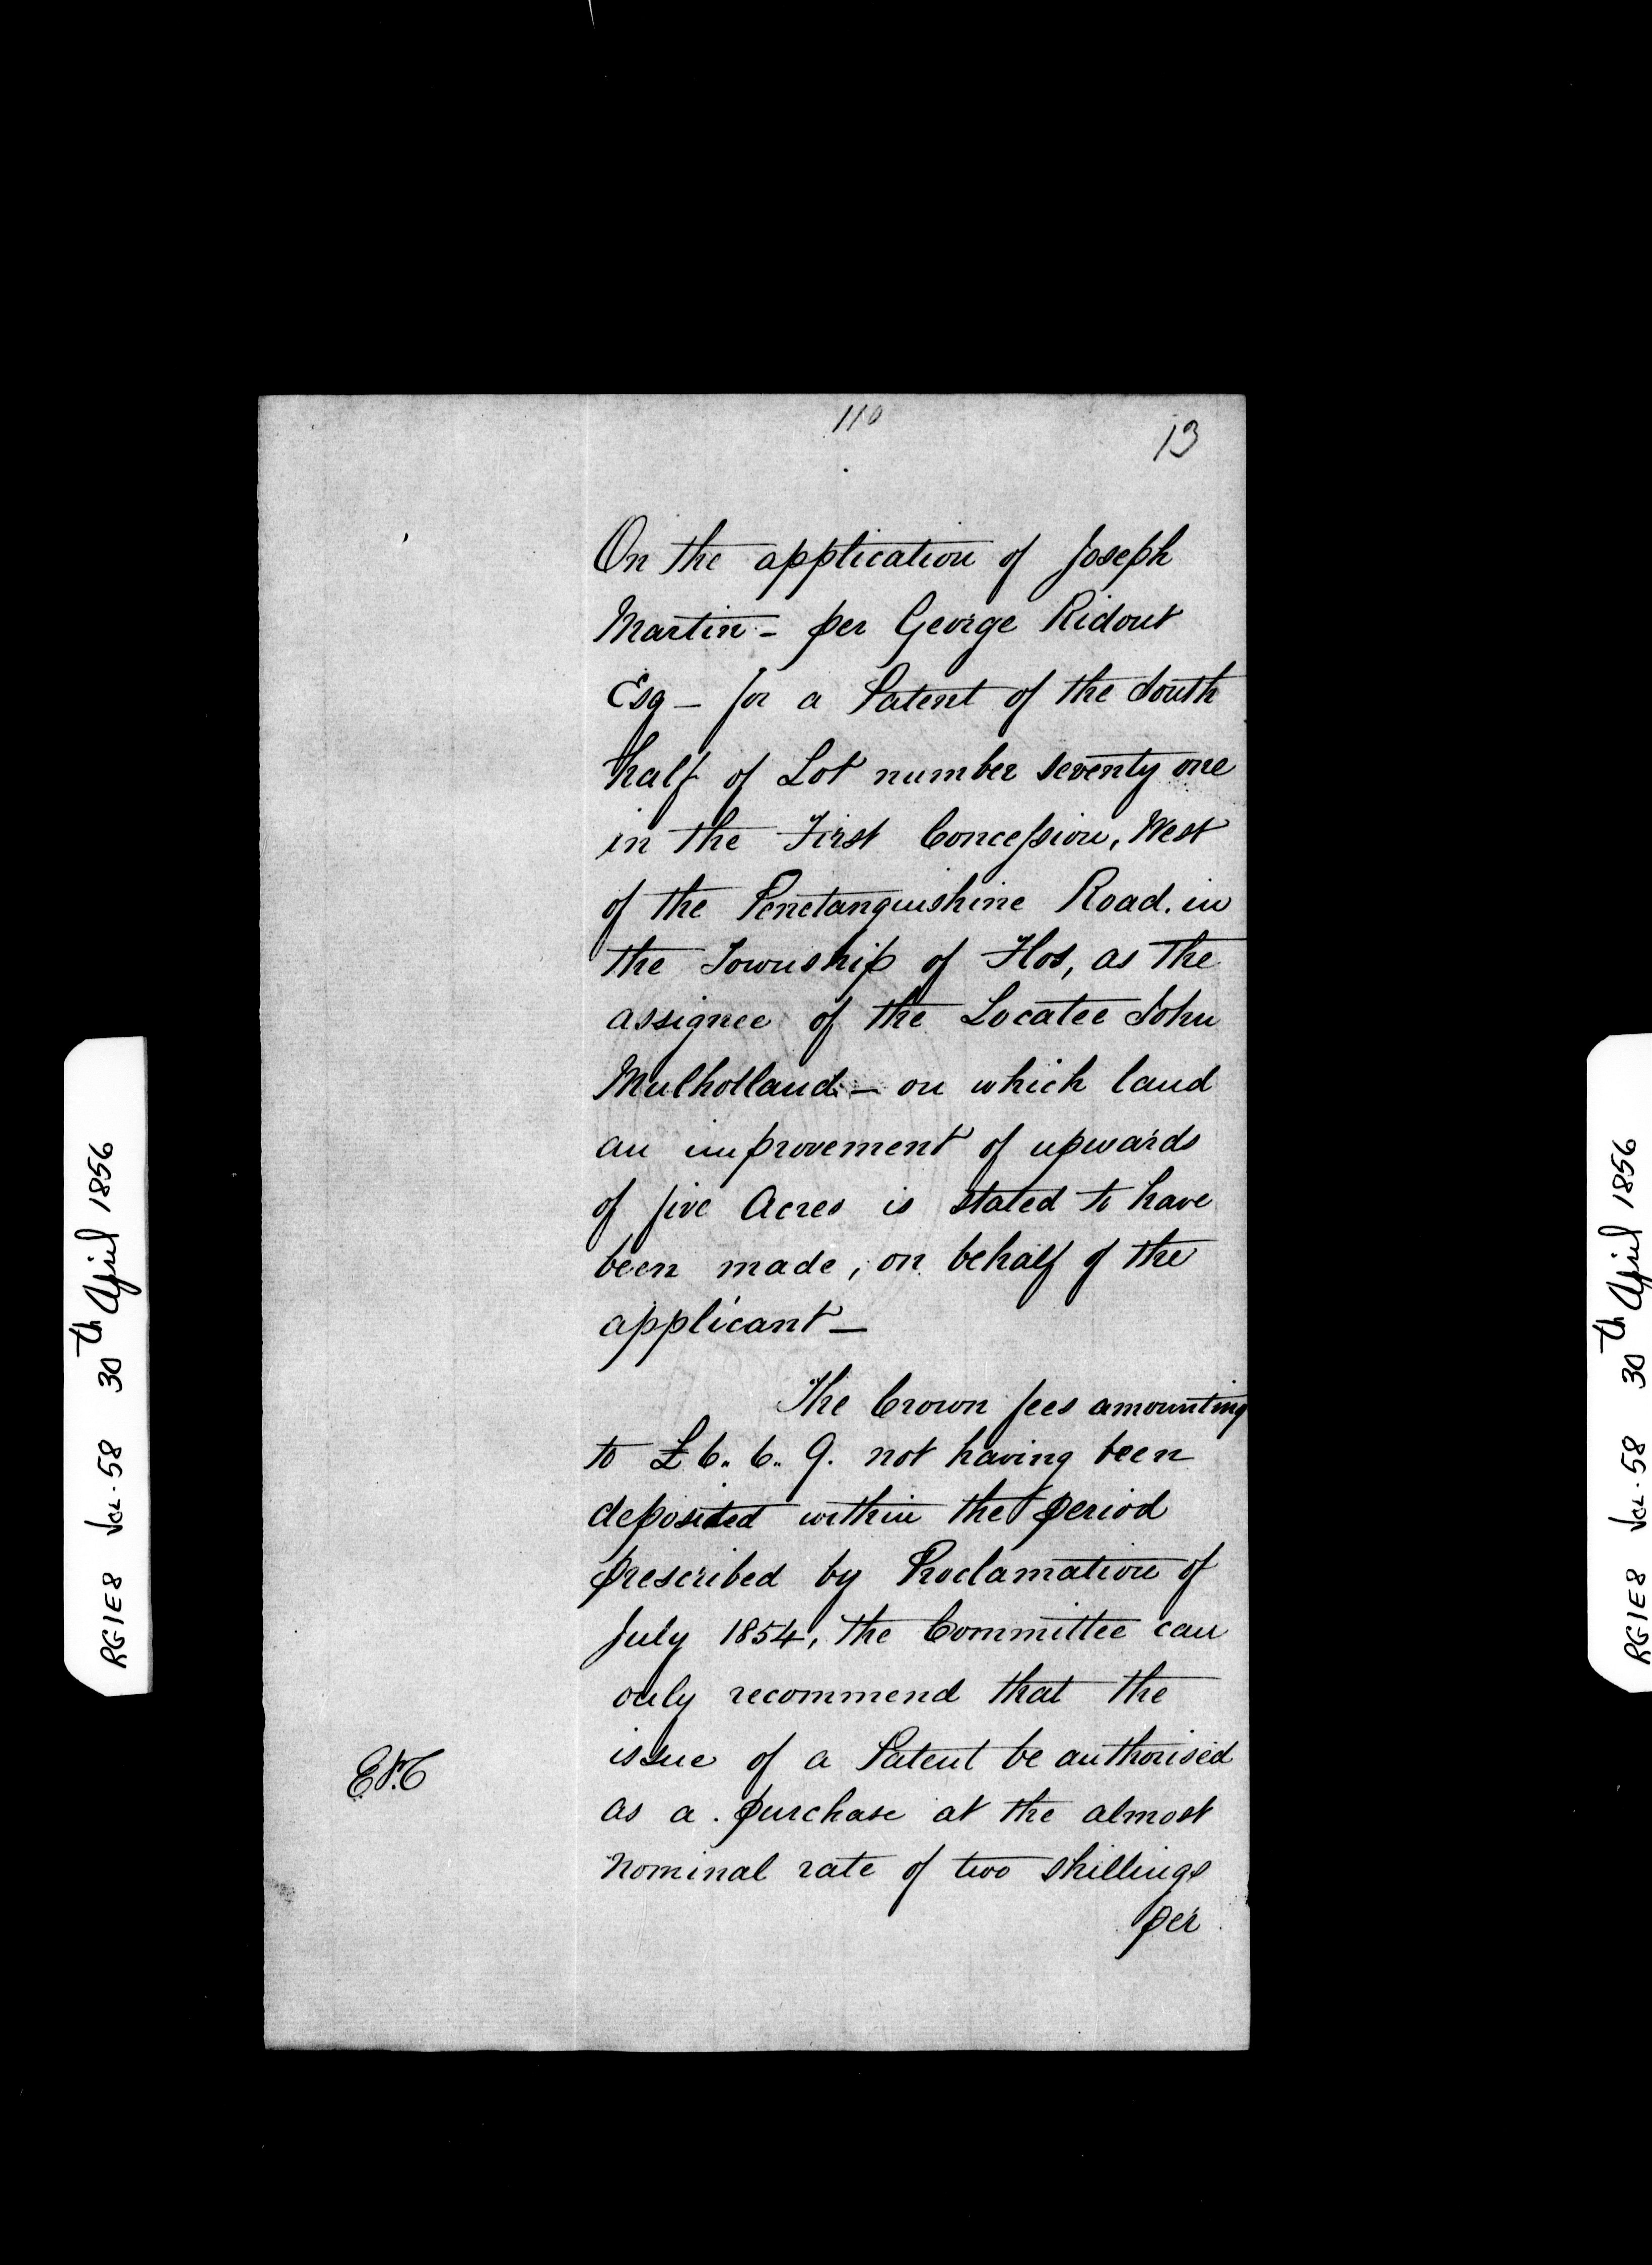 110
13
On the application of Joseph
Martin - per George Ridout
Esq - for a Patent of the South
half of Lot number seventy one
in the First Concession, West
of the Penetanguishine Road. in
the Township of Flos, as the
assignee of the Locatee John
Mulholland - on which land
an improvement of upwards
of five Acres is stated to have
been made, on behalf of the
applicant -
The Crown fees amounting
to £6.. 6.. 9. not having been
deposited within the period
prescribed by Proclamation of
July 1854, the Committee can
only recommend that the
issue of a Patent be authorised
as a purchase at the almost
nominal rate of two shillings
per
RG1E8 Vol. 58 30th April 1856
RG1E8 Vol. 58 30th April 1856